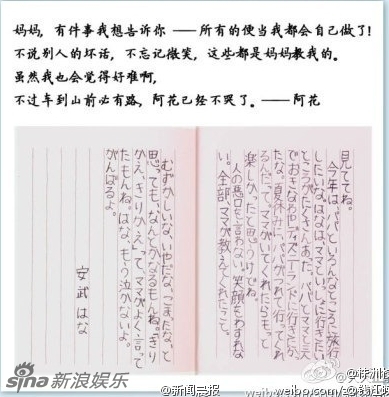 妈妈，有件事我想告诉你 ——所有的便当我都会自己做了!
不说别人的坏话，不忘记微笑，这些都是妈妈教我的。
虽然我也会觉得好难啊，
不过车到山前必有路，阿花已经不哭了。——阿花
見ててね。
今年は、パパといろんなところに旅行
したいな。はなはママといっしょに行きたかった
ところがたくさんあった。パパとママと三人
でおきなわやディズニーランドに行きたかっ
たな。夏休みに、パパがつれて行ってくれ
るんだって。ママがいてくれたらもっと
楽しかったと思うけどね。
人の悪口を言わない。笑顔をわすれな
い。全部、ママが教えてくれたこと。
むずかしいな、いやだな、こまったな、と
思っても、なんとかなるもんね。「きり
かえ、きりかえ」って、ママがよく言って
たもんね。はな、もう泣かないよ。
がんばるよ。
安武はな
sina新浪娱乐
@新闻晨报